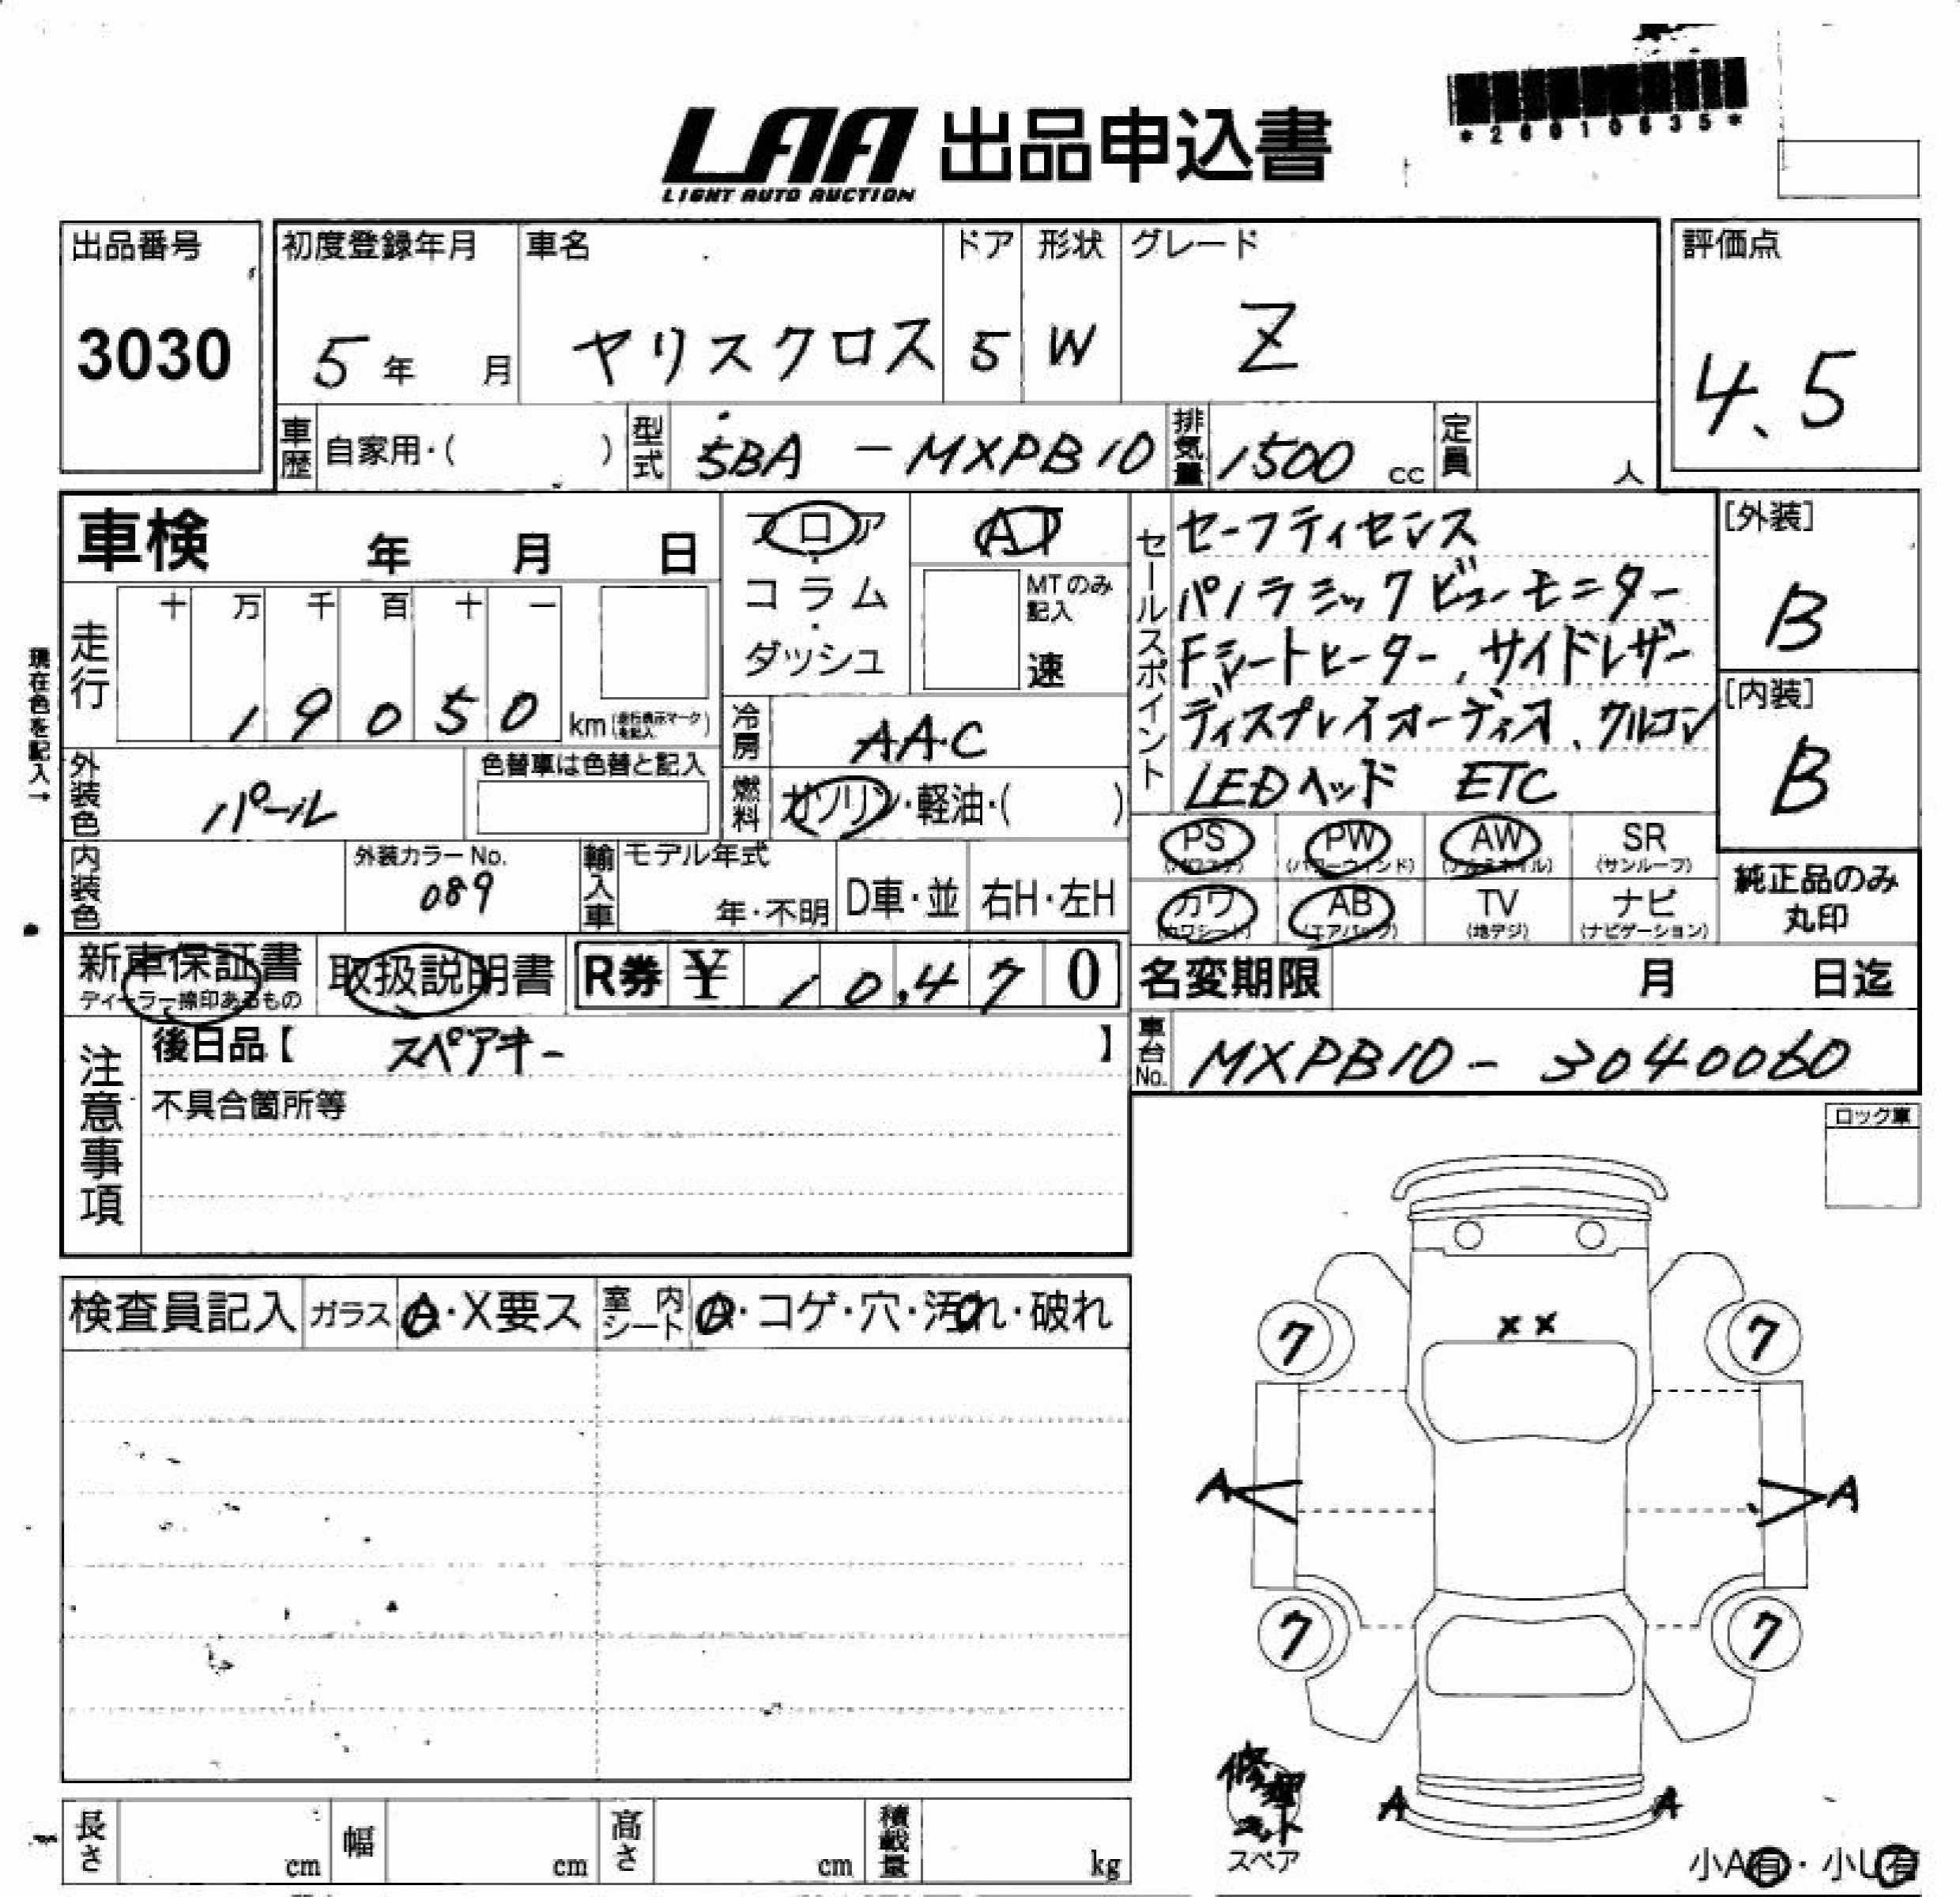 LAA 出品申込書
LIGHT AUTO AUCTION
*26010635*
出品番号
3030
初度登録年月
5年 月
車名
ヤリスクロス
ドア
5
形状
W
グレード
Z
評価点
4.5
車歴 自家用・( )
型式 5BA - MXPB10
排気量 1500 cc
定員 人
車検 年 月 日
フロア・コラム・ダッシュ
AT
MTのみ記入
速
セールスポイント
セーフティセンス
パノラミックビューモニター
Fシートヒーター、サイドレザー
ディスプレイオーディオ、クルコン
LEDヘッド ETC
[外装]
B
[内装]
B
現在色を記入→
走行
十 万 千 百 十 一
1 9 0 5 0 km (走行表示マークを記入)
冷房 AAC
燃料 ガソリン・軽油・( )
外装色 パール
色替車は色替と記入
内装色
外装カラーNo.
089
輸入車
モデル年式
年・不明
D車・並
右H・左H
PS (パワステ)
PW (パワーウィンド)
AW (アルミホイル)
SR (サンルーフ)
カワ (カワシート)
AB (エアバッグ)
TV (地デジ)
ナビ (ナビゲーション)
純正品のみ
丸印
新車保証書
ディーラー捺印あるもの
取扱説明書
R券 ¥ 10,470
名変期限 月 日迄
車台No. MXPB10 - 3040060
注意事項
後日品【 スペアキー 】
不具合箇所等
ロック車
検査員記入
ガラス A・X要ス
室内シート A・コゲ・穴・汚れ・破れ
XX
7 7
A A
7 7
A A
修理キット
スペア
小A有・小U有
長さ cm
幅 cm
高さ cm
積載量 kg